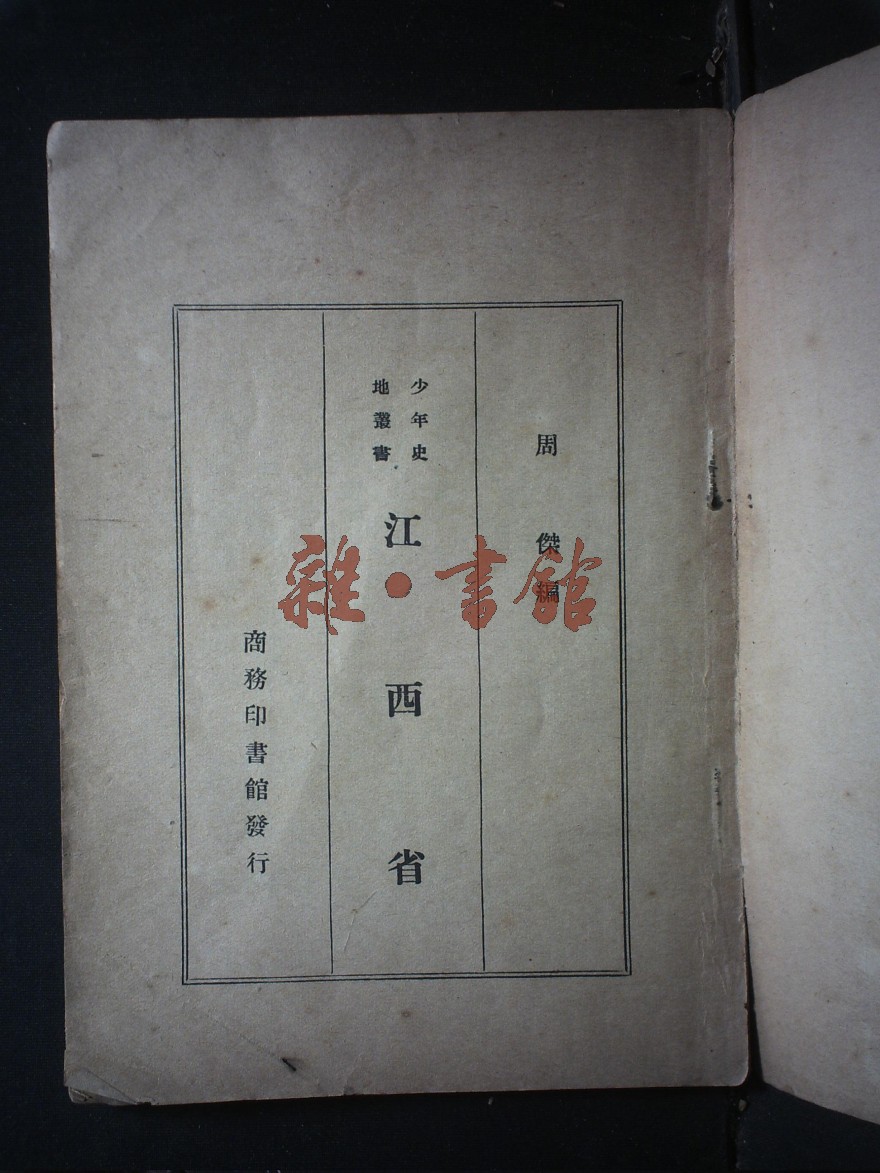 周傑編
少年史
地叢書
江西省
商務印書館發行
雜·書館